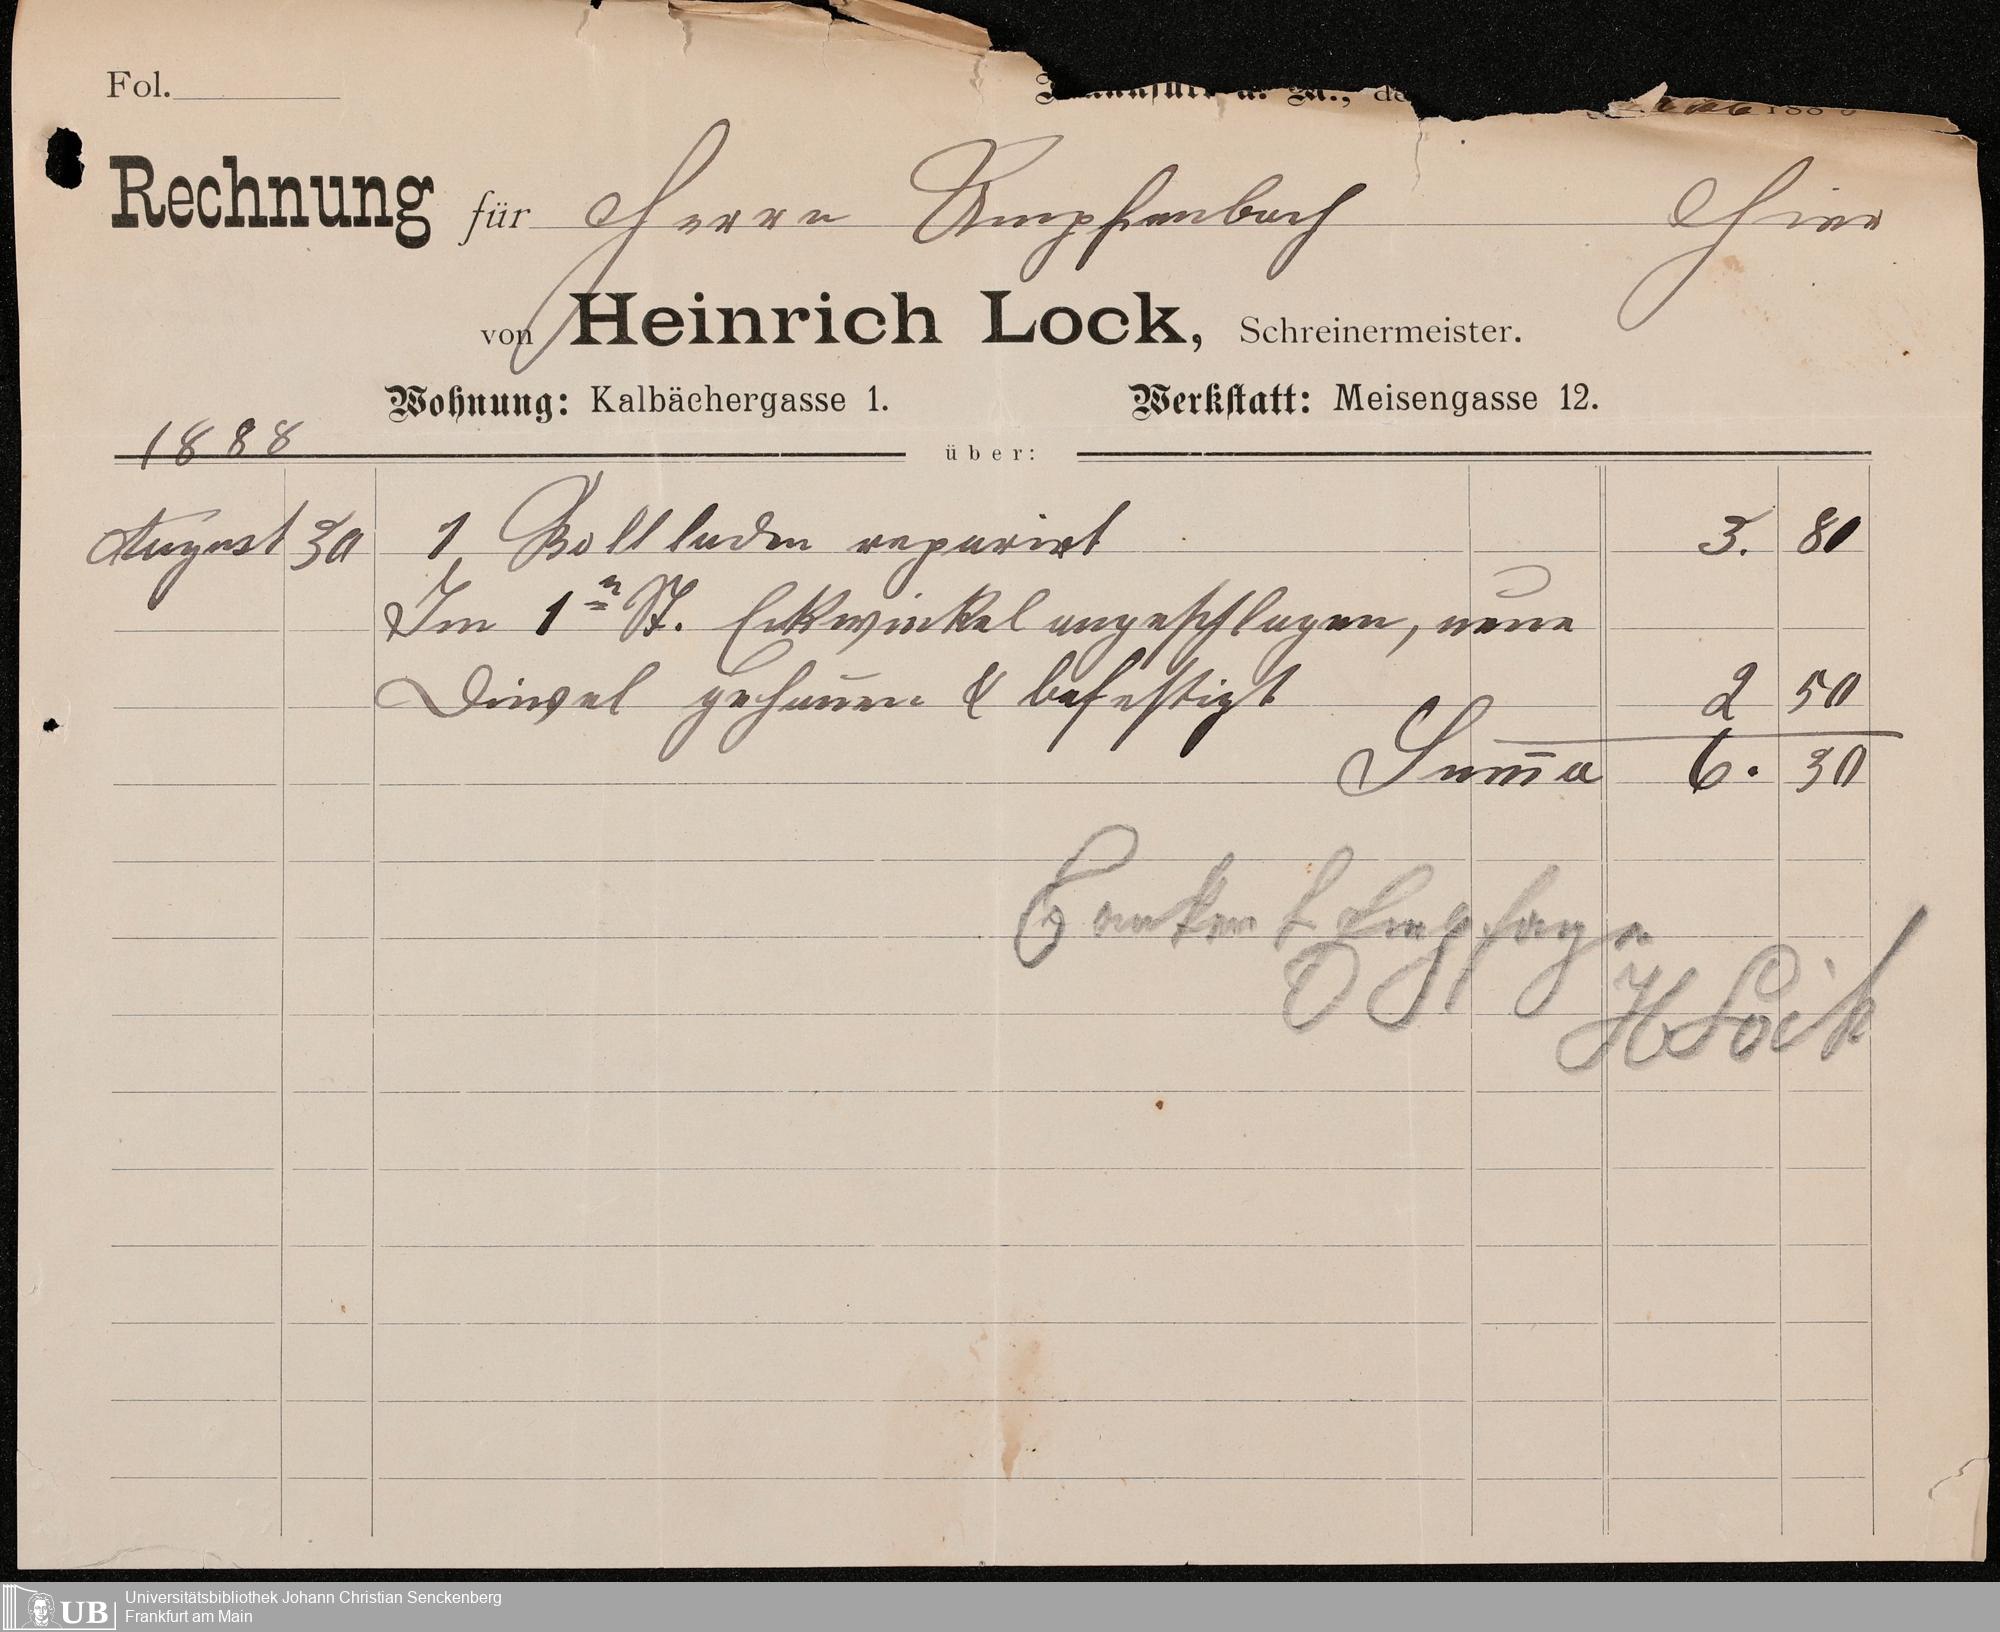 Fol.
Frankfurt a. M., de 188
Rechnung für Herrn Umpfenbach Hier
von Heinrich Lock, Schreinermeister.
Wohnung: Kalbächergasse 1. Werkstatt: Meisengasse 12.
1888
über:
August 30 1 Rollladen reparirt 3. 80
Im 1n St. Eckwinkel angeschlagen, neue
Diwel gehauen & befestigt 2 50
Suma 6. 30
dankend Empfange
H Lock
UB Universitätsbibliothek Johann Christian Senckenberg
Frankfurt am Main